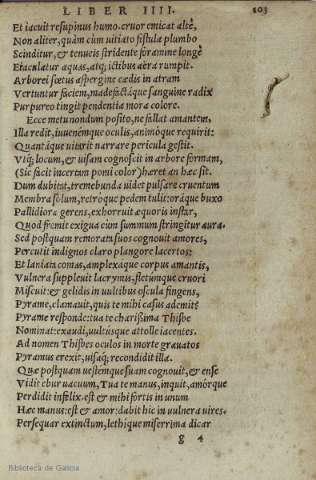 LIBER IIII. 103
Et iacuit resupinus humo. cruor emicat altè,
Non aliter, quàm cùm uitiato fistula plumbo
Scinditur, & tenueis stridente foramine longè
Eiaculatur aquas, atq; ictibus aëra rumpit.
Arborei fœtus aspergine cædis in atram
Vertuntur faciem, madefactáque sanguine radix
Purpureo tingit pendentia mora colore.
Ecce metu nondum posito, ne fallat amantem,
Illa redit, iuuenémque oculis, animóque requirit:
Quantáque uitarit narrare pericula gestit.
Vtq; locum, & uisam cognoscit in arbore formam,
(Sic facit incertam pomi color) hæret an hæc sit.
Dum dubitat, tremebunda uidet pulsare cruentum
Membra solum, retróque pedem tulit: oráque buxo
Pallidiora gerens, exhorruit æquoris instar,
Quod fremit exigua cùm summum stringitur aura.
Sed postquam remorata suos cognouit amores,
Percutit indignos claro plangore lacertos:
Et laniata comas, amplexáque corpus amantis,
Vulnera suppleuit lacrymis, fletúmque cruori
Miscuit: & gelidis in uultibus oscula figens,
Pyrame, clamauit, quis te mihi casus ademit?
Pyrame responde: tua te charißima Thisbe
Nominat: exaudi, uultúsque attolle iacentes.
Ad nomen Thisbes oculos in morte grauatos
Pyramus erexit, uisáq; recondidit illa.
Quæ postquam uestémque suam cognouit, & ense
Vidit ebur uacuum, Tua te manus, inquit, amórque
Perdidit infelix. est & mihi fortis in unum
Hæc manus: est & amor: dabit hic in uulnera uires.
Persequar extinctum, lethíque miserrima dicar
g 4
Biblioteca de Galicia